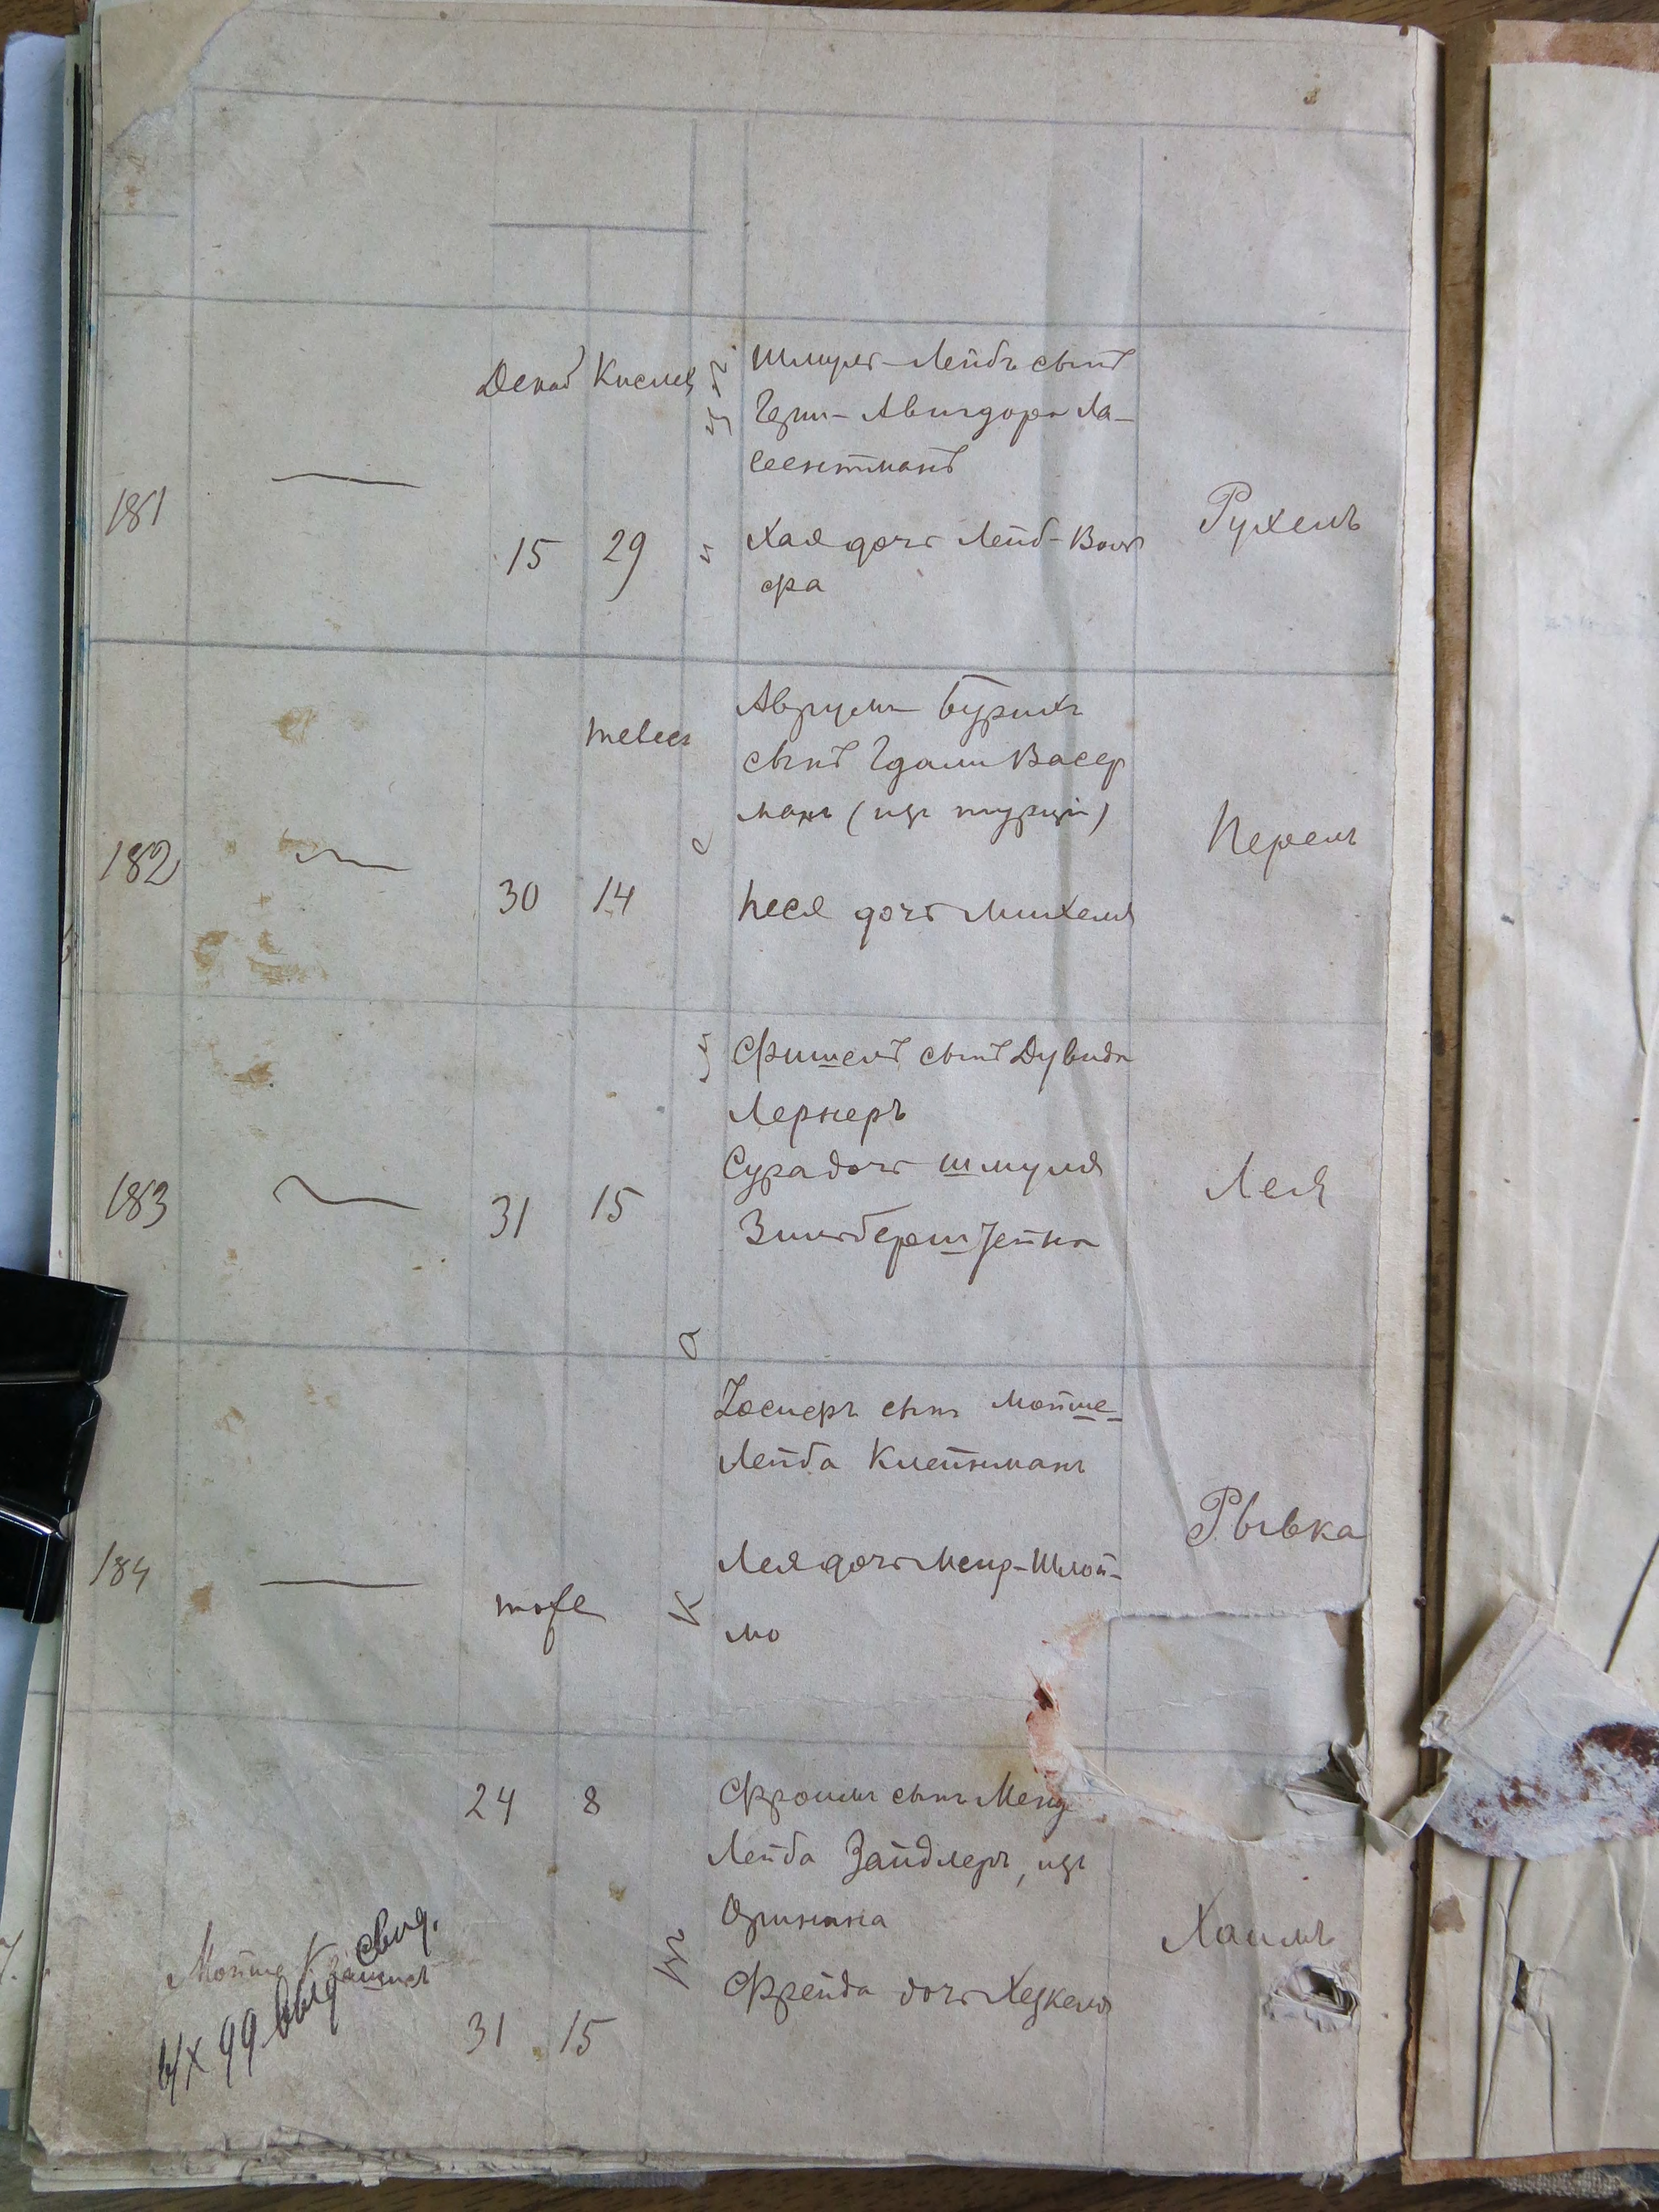 Декаб Кислев
181
15 29
Шмуль-Лейбъ сынъ
Герш-Авигдора Ла-
сеентманъ
Хая дочь Лейб-Воль
фа
Рухель
182
тевес
30 14
Аврум-Бурихъ
сынъ Гдали Васер
манъ (изъ турціи)
Песя дочь Михеля
Перель
183
31 15
Фишель сынъ Дувида
Лернеръ
Сура дочь Шмуля
Зильберштейна
Лея
184
тоже
Іосиеръ сынъ Мойше-
Лейба Клейнманъ
Лея дочь Меир-Шлой-
мо
Рывка
24 8
31 15
Фроимъ сынъ Менд
Лейба Зайдлеръ, изъ
Оринина
Фрейда дочь Хезкеля
Хаимъ
Мойше
свид.
99 выд